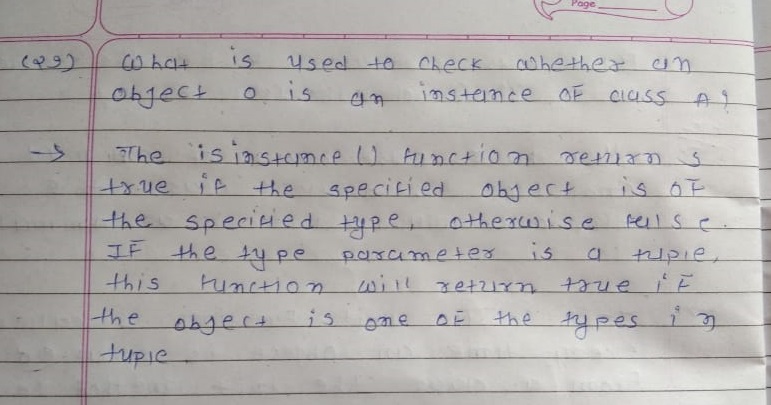 Page
(29) What is used to check whether an
object o is an instance of class A?
→ The isinstance() function returns
true if the specified object is of
the specified type, otherwise false.
If the type parameter is a tuple,
this function will return true if
the object is one of the types in
tuple